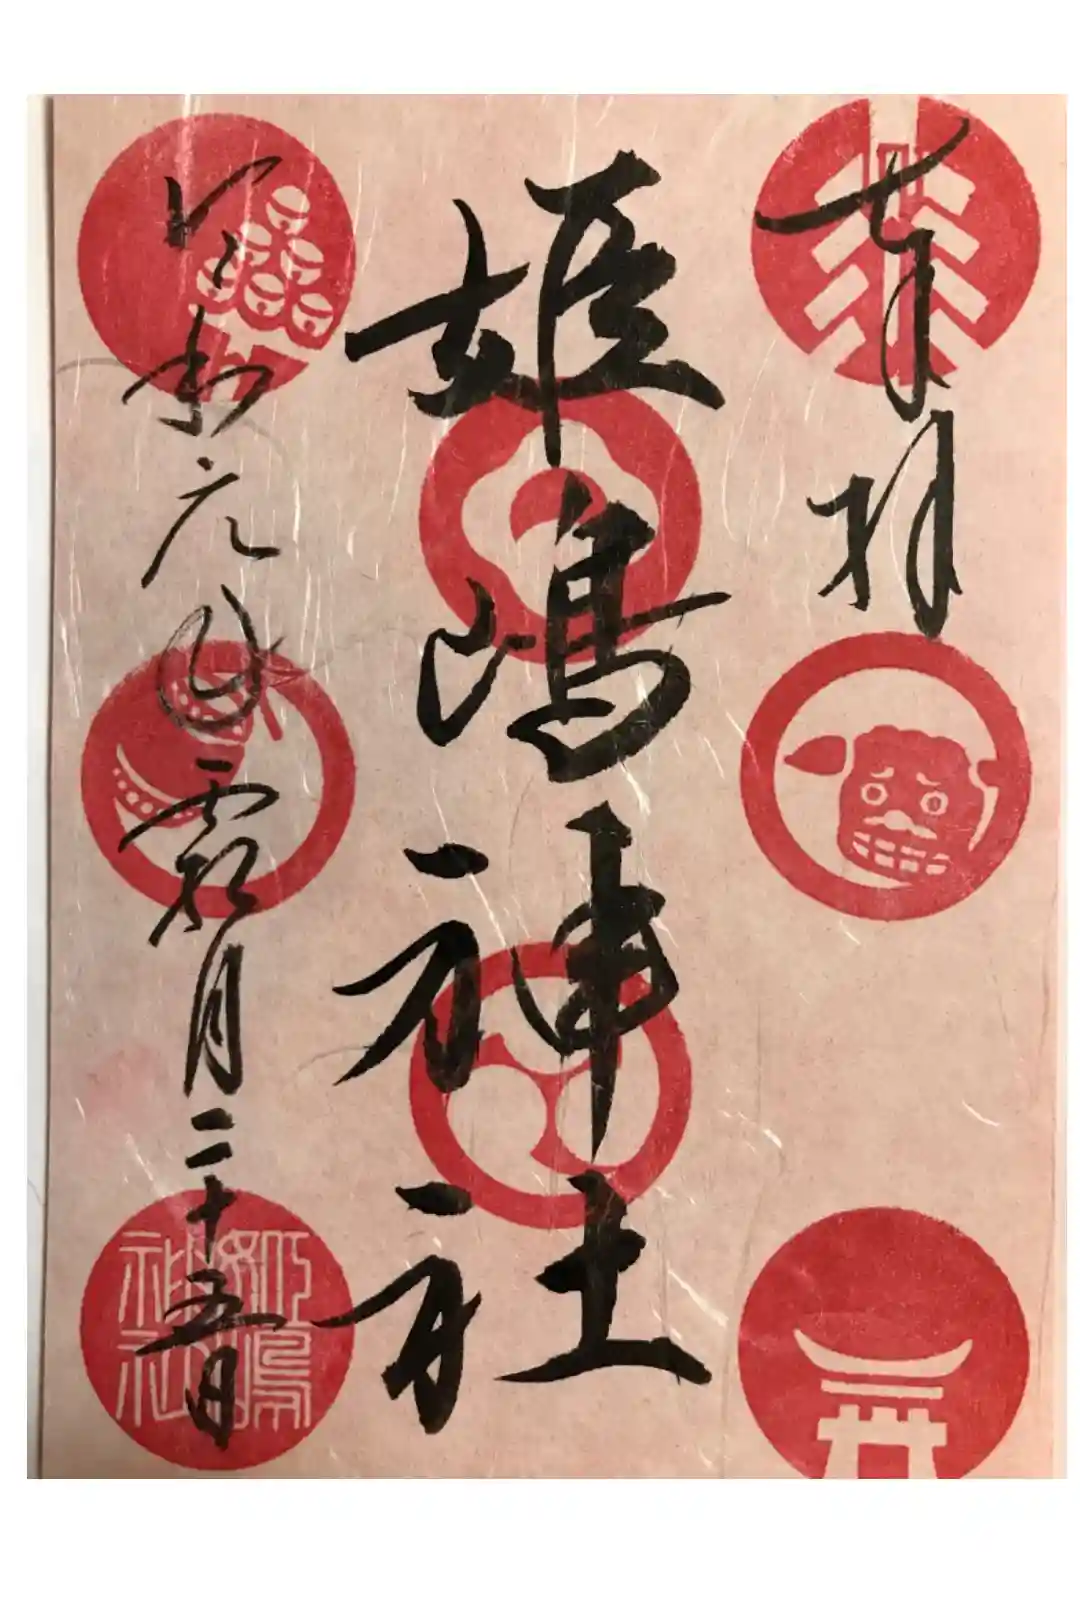 奉拝
姫嶋神社
令和元年霜月二十五日
姫嶋
神社